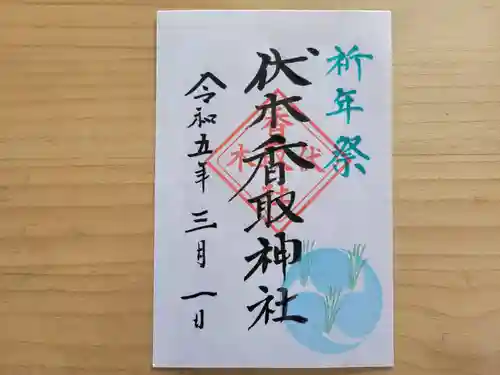 祈年祭
伏木香取神社
令和五年 三月 一日